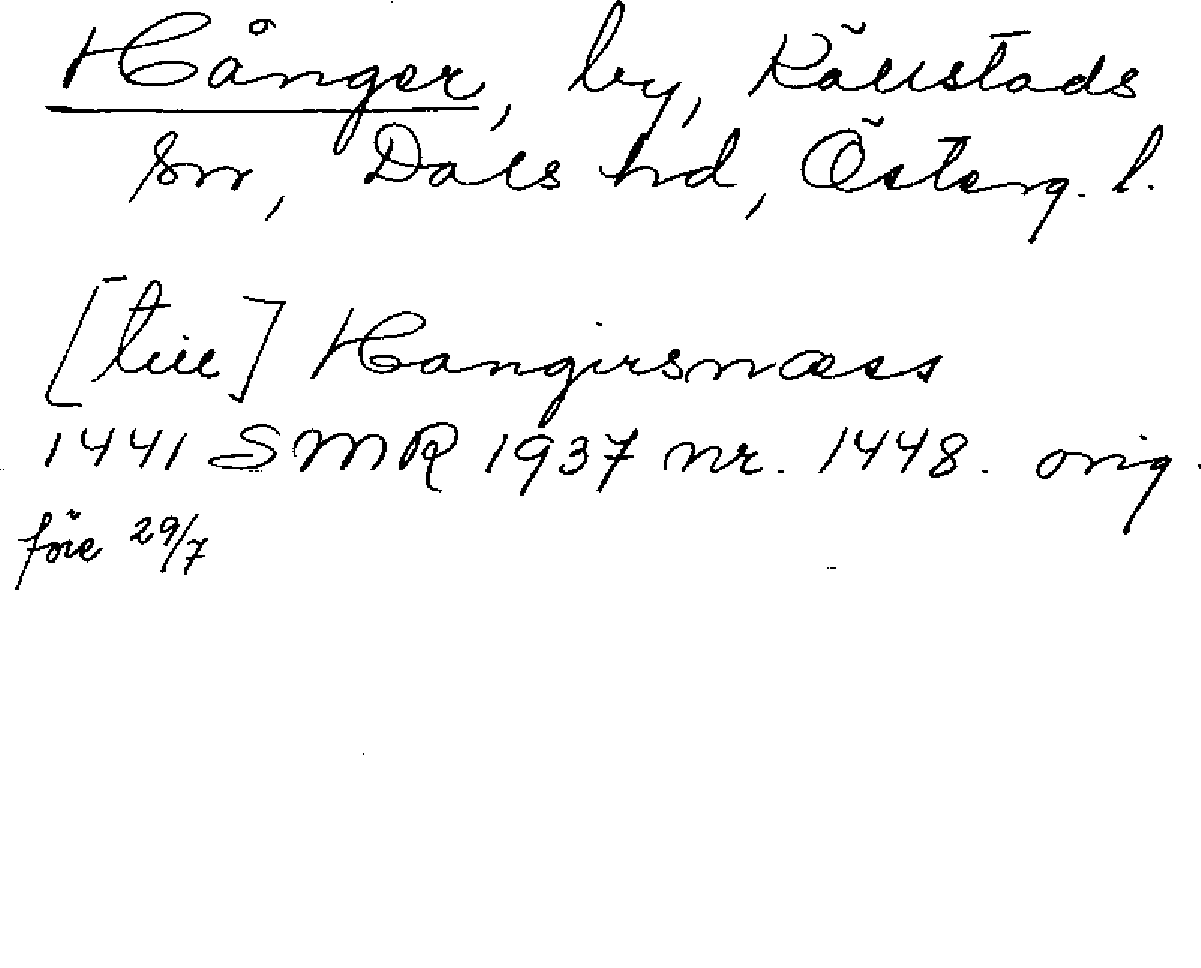 Hånger, by, Källstads
sn, Dals hd, Österg. l.
[till] Hangirsnæss
1441 SMR 1937 nr. 1448. orig.
före 29/7